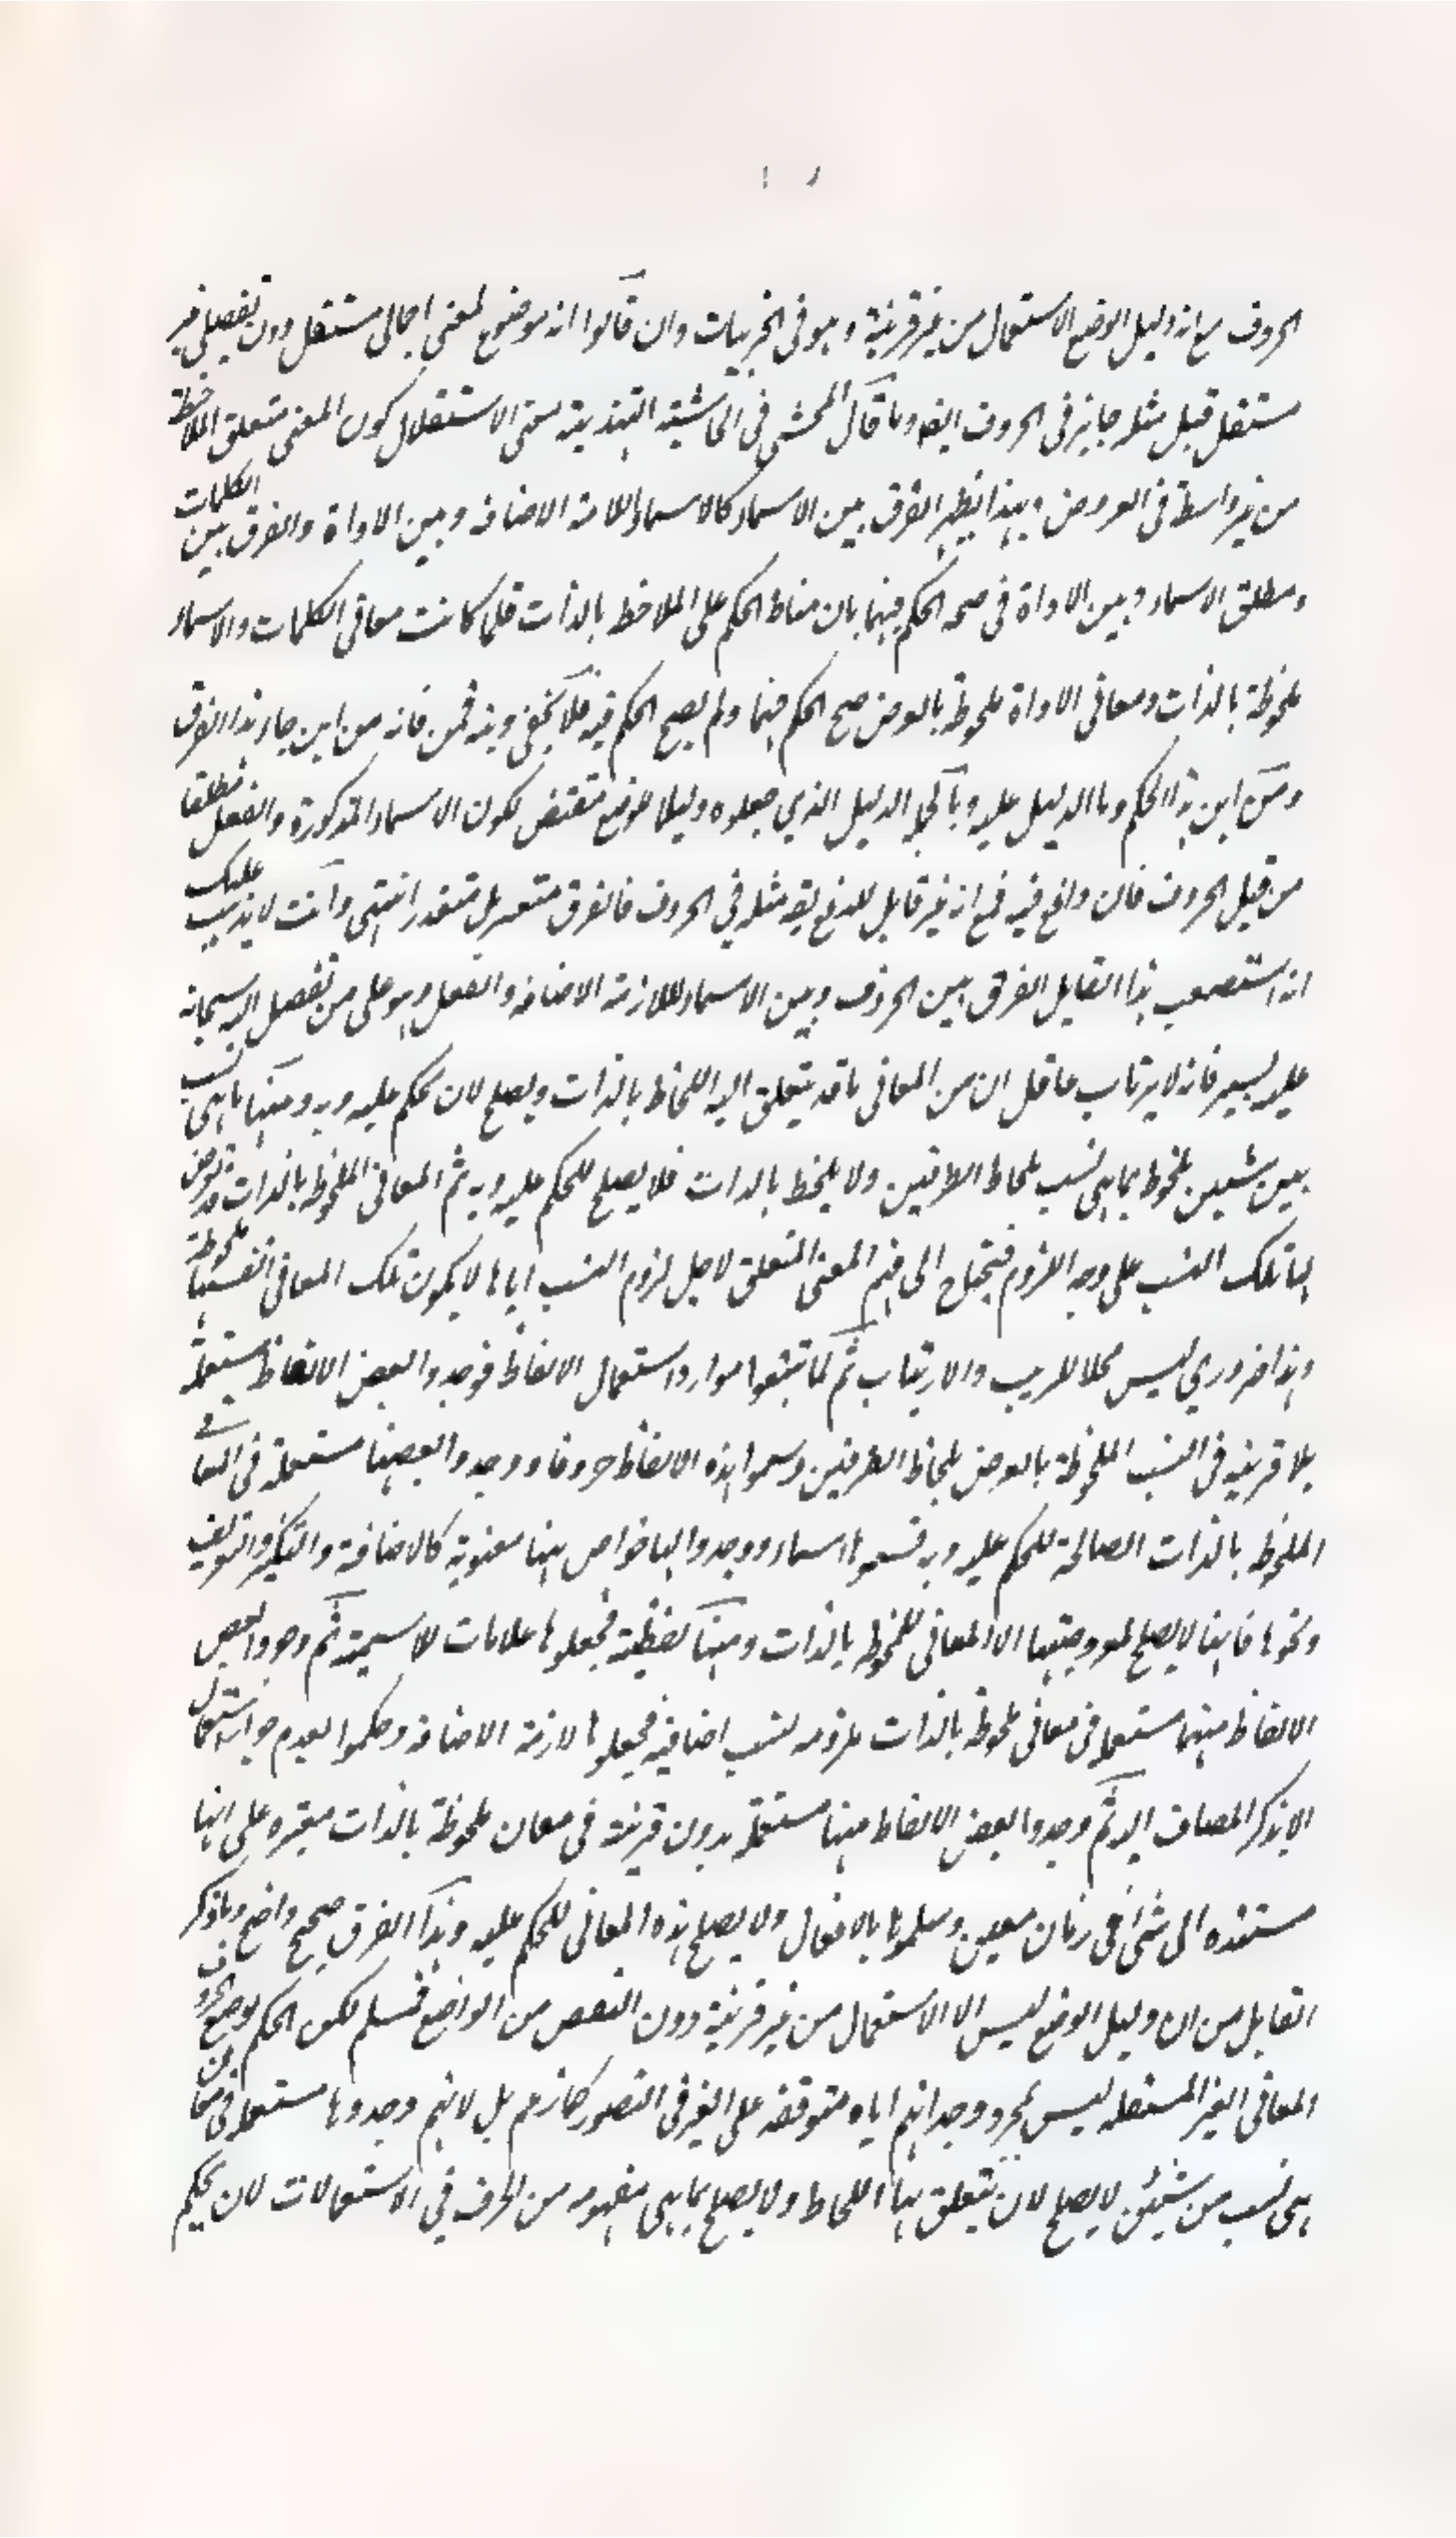 الحروف مع انه دليل الوضع الاستعمال من غير قرينة وهو في الجزئيات وان قالوا انه موضوع لمعنى اجمالي مستقل دون تفصيلي غير
مستقل قيل مثله جايز في الحروف ايضا وما قال المحشي في الحاشية التهذيبية معنى الاستقلال كون المعنى متعلق الملاحظة
من غير واسطة في العروض وبهذا يظهر الفرق بين الاسماء كالاسماء اللازمة الاضافة وبين الاداة والفرق بين الكلمات
ومطلق الاسماء وبين الاداة في صحة الحكم فيهما بان مناط الحكم على الملاحظ بالذات فلما كانت معاني الكلمات والاسماء
ملحوظة بالذات ومعاني الاداة ملحوظة بالعرض صح الحكم فيهما ولم يصح الحكم فيه فلا يخفى وهنه فمن فانه من اين جاء هذا الفرق
ومن اين هذا الحكم وما الدليل عليه وبالجملة الدليل الذي جعلوه دليلا للوضع مقتض لكون الاسماء المذكورة والفعل مطلقا
من قبيل الحروف فان دافع فيه فمع انه غير قابل للدفع يقع مثله في الحروف فالفرق متعسر بل متعذر انتهى وانت لا يذهب عليك
انه استصعب هذا القايل الفرق بين الحروف وبين الاسماء اللازمة الاضافة والفعل وهو على من تفضل الله سبحانه
عليه يسير فانه لا يرتاب عاقل ان من المعاني ما قد يتعلق اليه اللحاظ بالذات ويصلح لان يحكم عليه وبه ومنها ما هي نسب
بين شيئين ملحوظ بما هي نسب بلحاظ الطرفين ولا يلحظ بالذات فلا يصلح للحكم عليه وبه ثم المعاني الملحوظ بالذات قد تعرض
لها تلك النسب على وجه اللزوم فيحتاج الى فهم المعنى المتعلق لاجل لزوم النسب اياها لا يكون تلك المعاني انفسها ملحوظة
وهذا ضروري ليس محلا للريب والارتياب ثم لما تتبعوا موارد استعمال الالفاظ فوجدوا بعض الالفاظ مستعملة
بلا قرينة في النسب الملحوظة بالعرض بلحاظ الطرفين وسموا هذه الالفاظ حروفا ووجدوا بعضها مستعملة في المعاني
الملحوظ بالذات الصالحة للحكم عليه وبه فسموها اسماء ووجدوا لها خواص منها معنوية كالاضافة والتنكير والتعريف
ونحوها فانها لا يصلح لمعروضيتها الا المعاني الملحوظ بالذات ومنها لفظية فجعلوها علامات للاسمية ثم وجدوا بعض
الالفاظ منها مستعملة في معاني ملحوظة بالذات ملزومة لنسب اضافية فجعلوها لازمة الاضافة وحكموا بعدم جواز استعمال
الا بذكر المضاف اليه ثم وجدوا بعض الالفاظ منها مستعملة بدون قرينة في معان ملحوظة بالذات معتبرة على انها
مستندة الى شئ في زمان معين وسموها بالافعال ولا يصلح هذه المعاني للحكم عليه وهذا الفرق صحيح واضح وما ذكر
القايل من ان دليل الوضع ليس الا الاستعمال من غير قرينة دون النص من الواضع فمسلم لكن الحكم بوضع الحروف
المعاني الغير المستقلة ليس بمجرد وجدانهم اياه متوقفة على الغير في التصور كما زعم بل لانهم وجدوها مستعملة في معان
هي نسب من شيئين لا يصلح لان يتعلق بها اللحاظ ولا يصلح بما هي مفهومه من الحرف في الاستعمالات لان يحكم